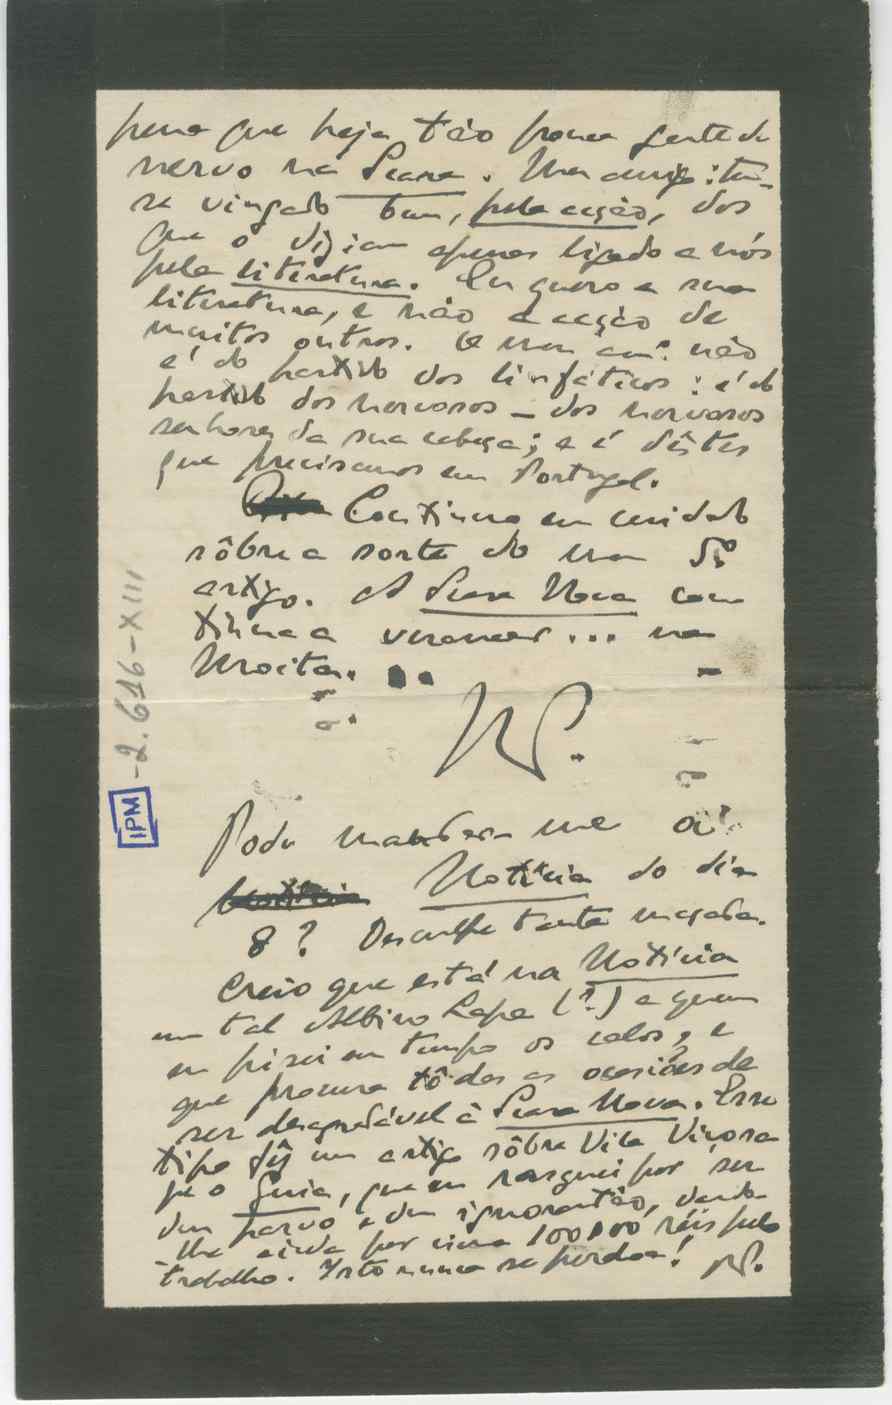 pena que haja tão pouca gente de
nervo na Seara. Meu amigo: tem-
se vingado bem, pela acção, dos
que o diziam apenas ligado a nós
pela literatura. Eu quero a sua
literatura, e não a acção de
muitos outros. O meu am.º não
é do partido dos linfáticos: é do
partido dos nervosos — dos nervosos
senhores da sua cabeça; e é dêstes
que precisamos em Portugal.
Continuo em cuidado
sôbre a sorte do meu
artigo. A Seara Nova con
tinua a veranear... na
Moita.
RP.
Pode mandar-me aí
Notícia do dia
8? Desculpe tanta maçada.
Creio que está na Notícia
um tal Albino Lapa (?) a quem
eu pisei em tempo os calos, e
que procura tôdas as ocasiões de
ser desagradável à Seara Nova. Esse
tipo fêz um artigo sôbre Vila Viçosa
pª o Guia, que eu rasguei por ser
dum parvo e dum ignorantão, dando-
-lhe ainda por cima 100000 réis pelo
trabalho. Isto nunca se perdoa! RP.
IPM - 2.616-XIII